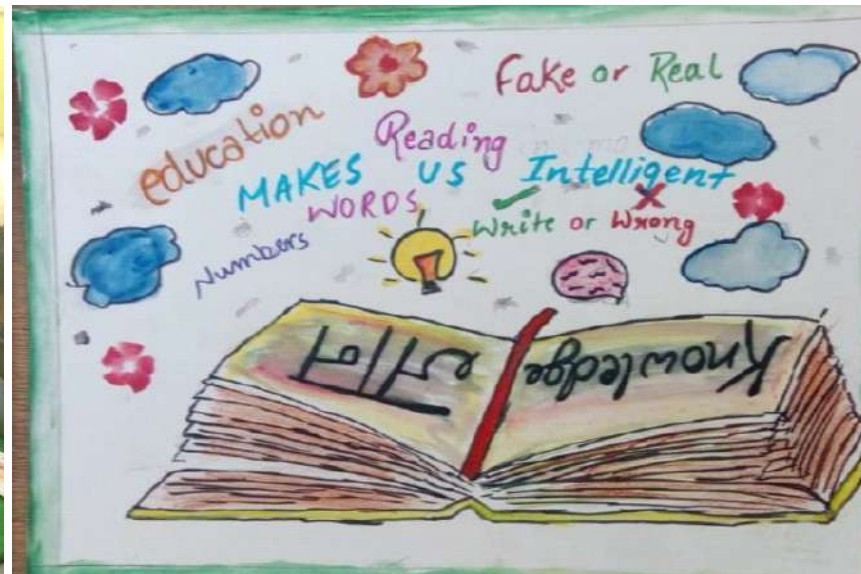 Fake or Real
education
Reading
MAKES US Intelligent
WORDS
Write or Wrong
Numbers
Knowledge
ज्ञान